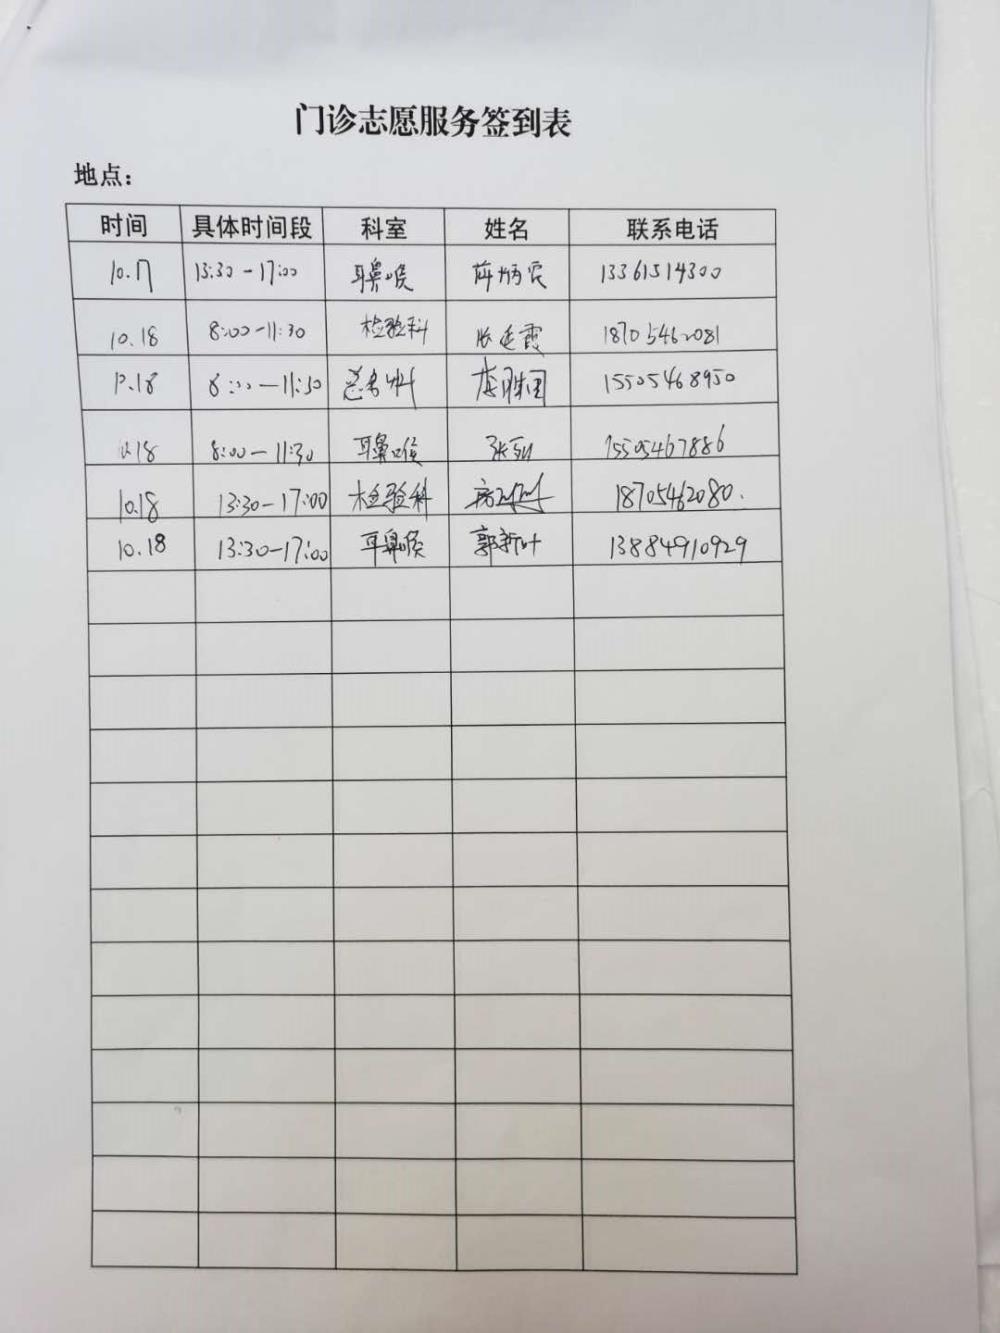 门诊志愿服务签到表
地点：
时间 具体时间段 科室 姓名 联系电话
10.17 13:30-17:00 耳鼻喉 13361514300
10.18 8:00-11:30 检验科 张廷霞 18705462081
10.18 8:00-11:30 15505468950
10.18 8:00-11:30 耳鼻喉 15505467886
10.18 13:30-17:00 检验科 18705462080.
10.18 13:30-17:00 耳鼻喉 郭新叶 13884910929